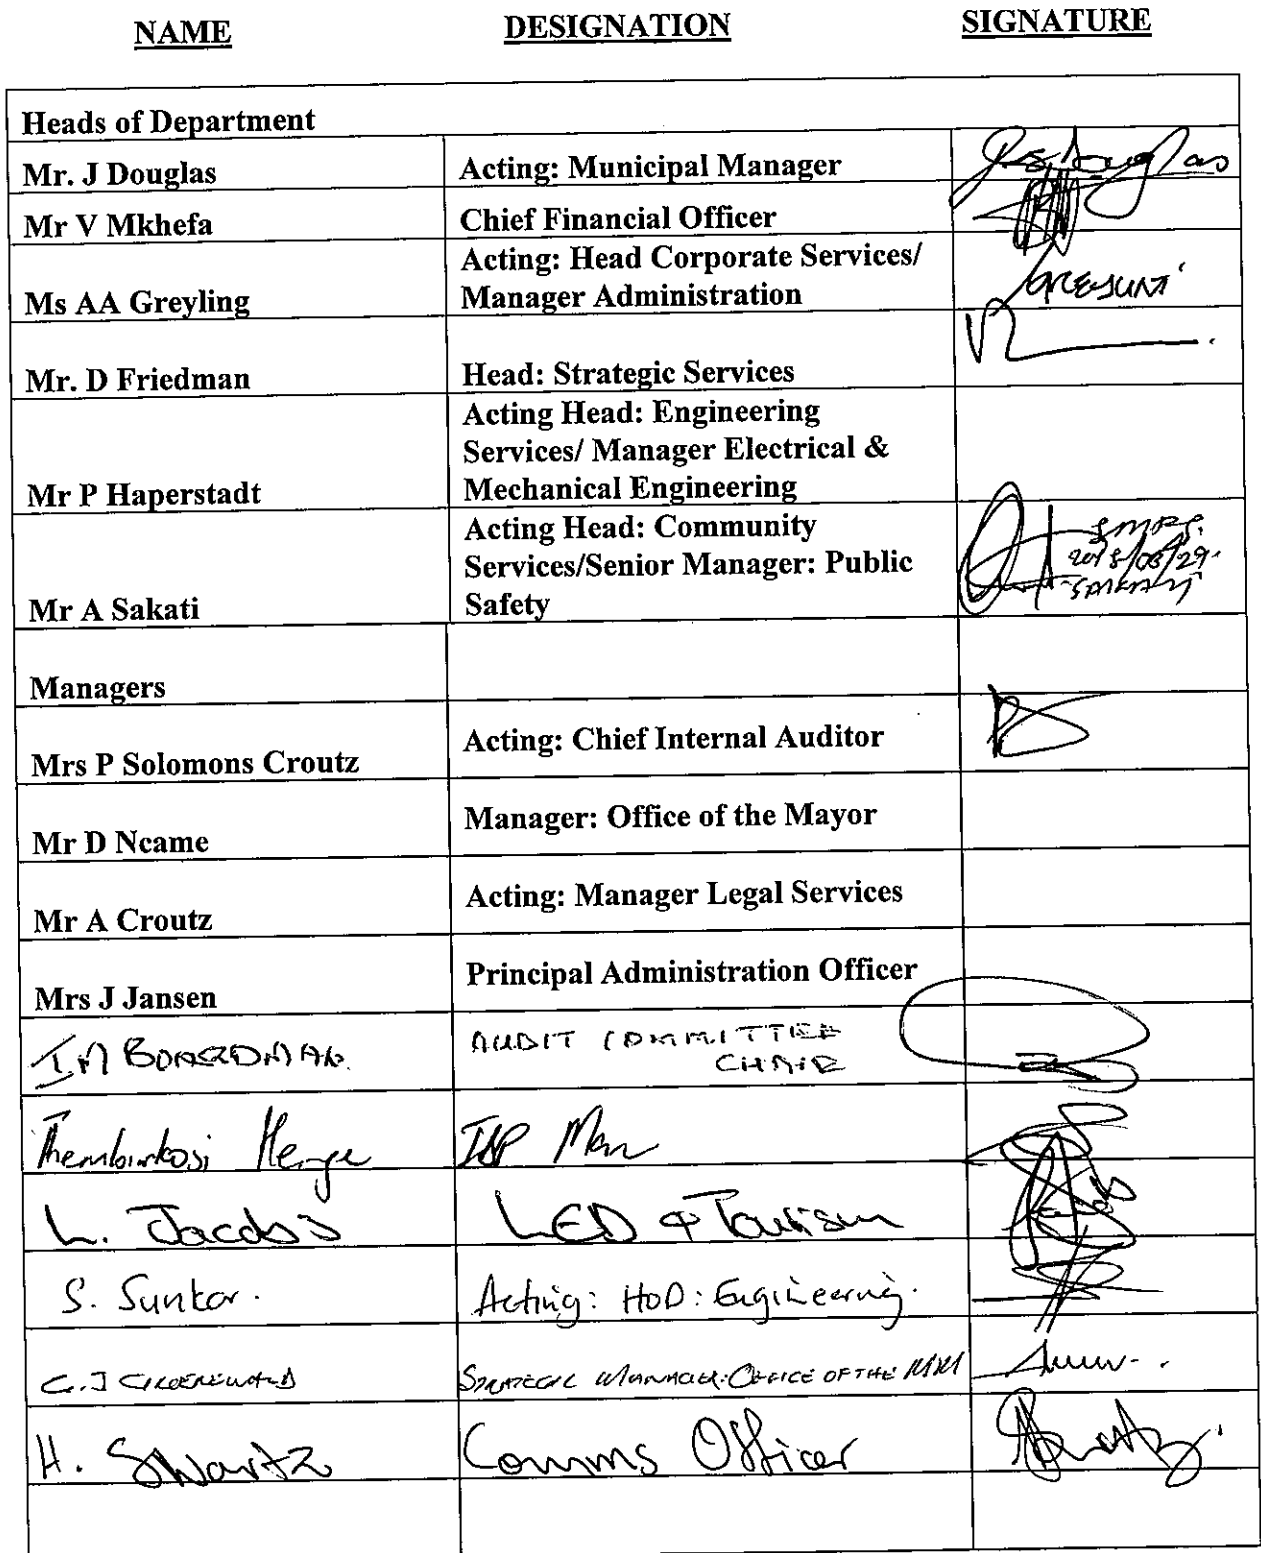 NAME DESIGNATION SIGNATURE
Heads of Department
Mr. J Douglas Acting: Municipal Manager
Mr V Mkhefa Chief Financial Officer
Acting: Head Corporate Services/
Ms AA Greyling Manager Administration
Mr. D Friedman Head: Strategic Services
Acting Head: Engineering
Services/ Manager Electrical &
Mr P Haperstadt Mechanical Engineering
Acting Head: Community
Services/Senior Manager: Public
Mr A Sakati Safety
2018/08/29
Managers
Mrs P Solomons Croutz Acting: Chief Internal Auditor
Mr D Ncame Manager: Office of the Mayor
Mr A Croutz Acting: Manager Legal Services
Mrs J Jansen Principal Administration Officer
I M BOARDMAN. AUDIT COMMITTEE
CHAIR
Thembinkosi
L. Jacobs LED & Tourism
S. Sunkar. Acting: HOD: Engineering.
C.J GROENEWALD STRATEGIC MANAGER: OFFICE OF THE MM
H. Swartz Comms Officer